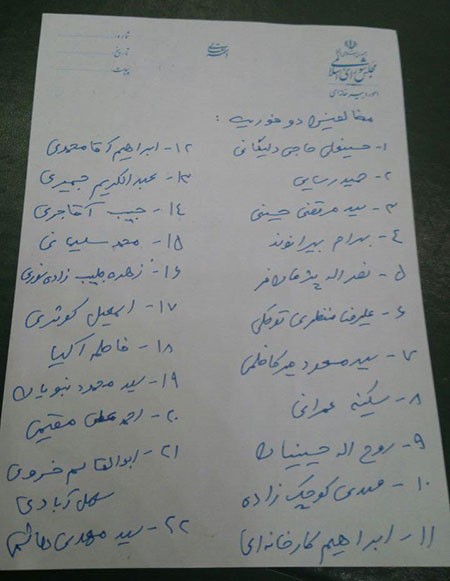 مجلس شورای اسلامی
شماره
تاریخ
پیوست
مخالفین دو فوریت :
۱- حسینعلی حاجی دلیگانی
۲- حمید رسایی
۳- سید مرتضی حسینی
۴- بهرام بیرانوند
۵- نصراله پژمانفر
۶- علیرضا منظری توکلی
۷- سید مسعود میرکاظمی
۸- سکینه عمرانی
۹- روح اله حسینیان
۱۰- مهدی کوچک زاده
۱۱- ابراهیم کارخانه‌ای
۱۲- ابراهیم آقامحمدی
۱۳- عبدالکریم جمیری
۱۴- حبیب آقاجری
۱۵- محمد سلیمانی
۱۶- زهره طبیب زاده نوری
۱۷- اسمعیل کوثری
۱۸- فاطمه آلیا
۱۹- سید محمود نبویان
۲۰- احمدعلی مقیمی
۲۱- ابوالقاسم خسروی
سهل آبادی
۲۲- سید مهدی هاشمی